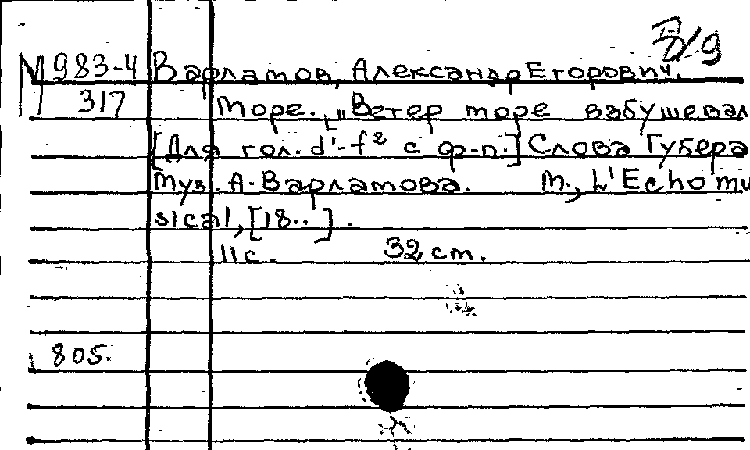 В/9
М 983-4 Варламов, Александр Егорович.
317 Море. "Ветер море взбушевал
[Для гол. d¹-f² с ф-п.] Слова Губера
Муз. А. Варламова. М., L'Echo mu
sical, [18..].
11 с. 32 см.
805.